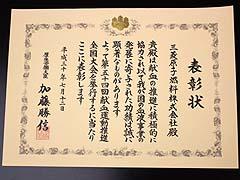 表彰状
三菱原子燃料株式会社殿
貴殿は献血の推進に積極的に
協力されわが国の血液事業の
発展に寄与された功績は誠に
顕著なものがあります
よって第五十四回献血運動推進
全国大会を挙行するに当たり
ここに表彰します
平成三十年七月十二日
厚生労働大臣
加藤勝信